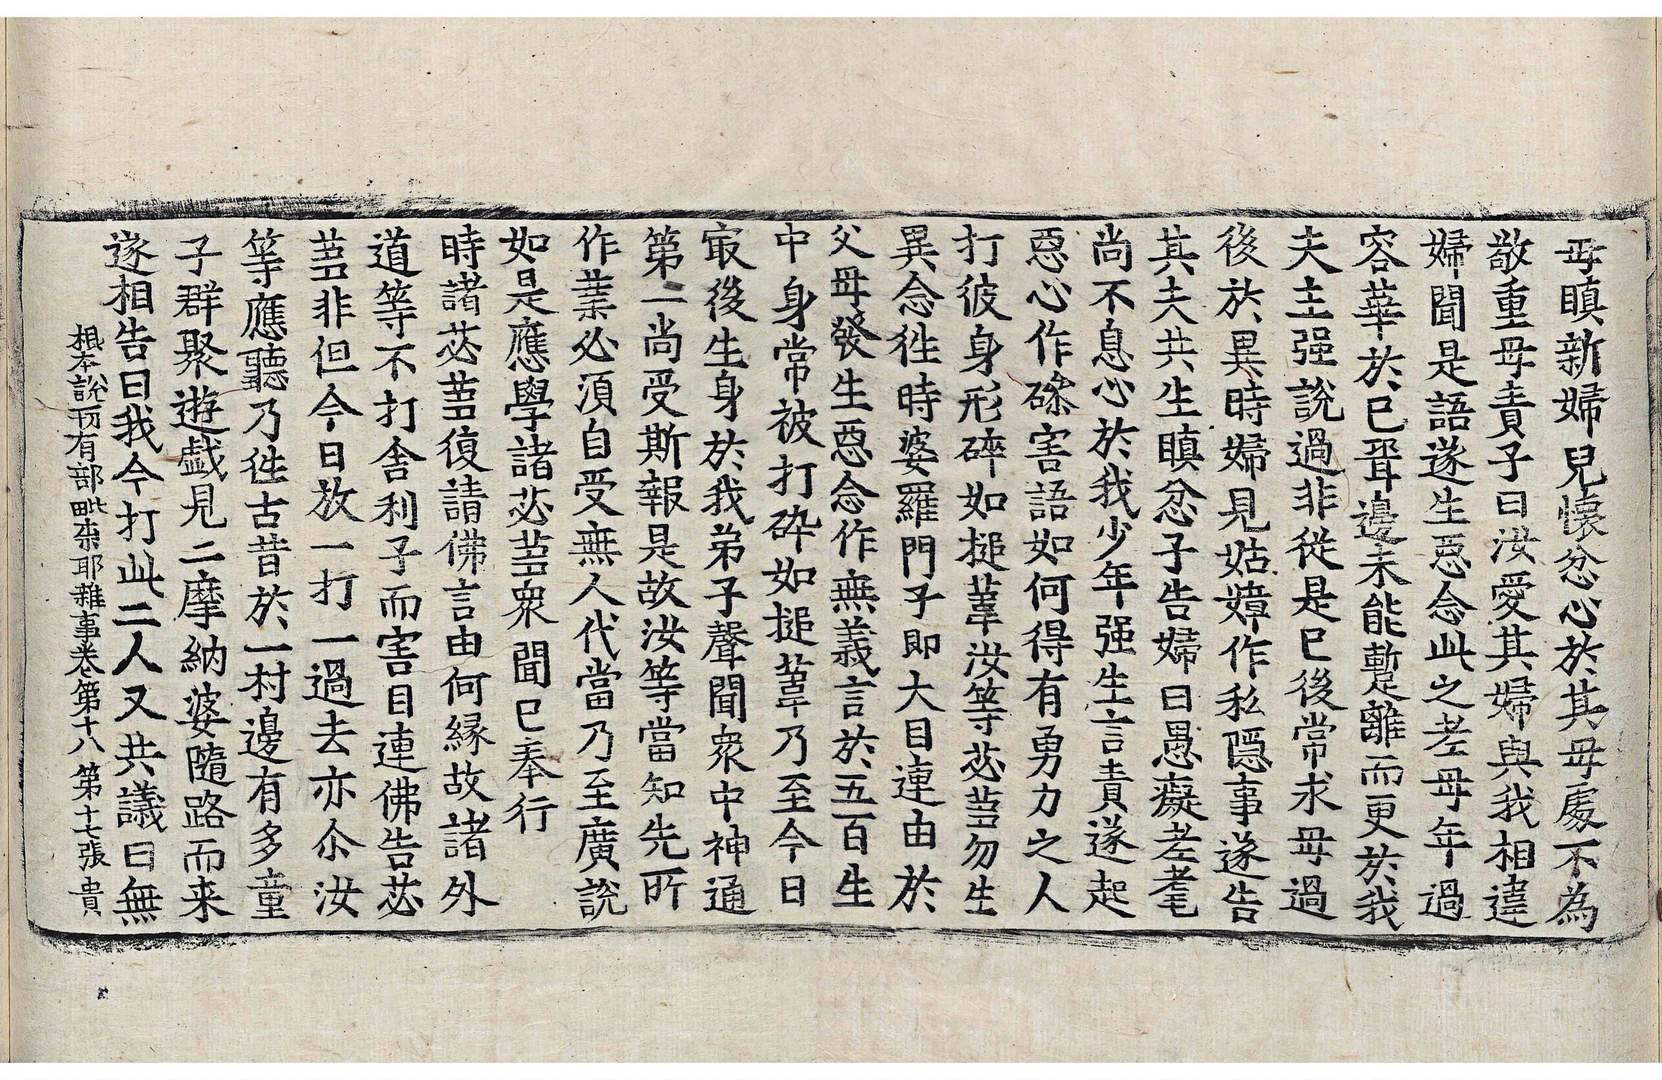 母瞋新婦兒懷忿心於其母處不為
敬重母責子曰汝愛其婦與我相違
婦聞是語遂生惡念此之老母年過
容華於己聓邊未能暫離而更於我
夫主强說過非從是已後常求母過
後於異時婦見姑嫜作私隱事遂告
其夫共生瞋忿子告婦曰愚癡老耄
尚不息心於我少年强生言責遂起
惡心作磣害語如何得有勇力之人
打彼身形碎如搥葦汝等苾芻勿生
異念徃時婆羅門子即大目連由於
父母發生惡念作無義言於五百生
中身常被打碎如搥葦乃至今日
㝡後生身於我弟子聲聞衆中神通
第一尚受斯報是故汝等當知先所
作業必須自受無人代當乃至廣說
如是應學諸苾芻衆聞已奉行
時諸苾芻復請佛言由何緣故諸外
道等不打舍利子而害目連佛告苾
芻非但今日放一打一過去亦尒汝
等應聽乃徃古昔於一村邊有多童
子群聚遊戲見二摩納婆隨路而来
遂相告曰我今打此二人又共議曰無
根本說一切有部毗柰耶雜事卷第十八 第十七張 貴